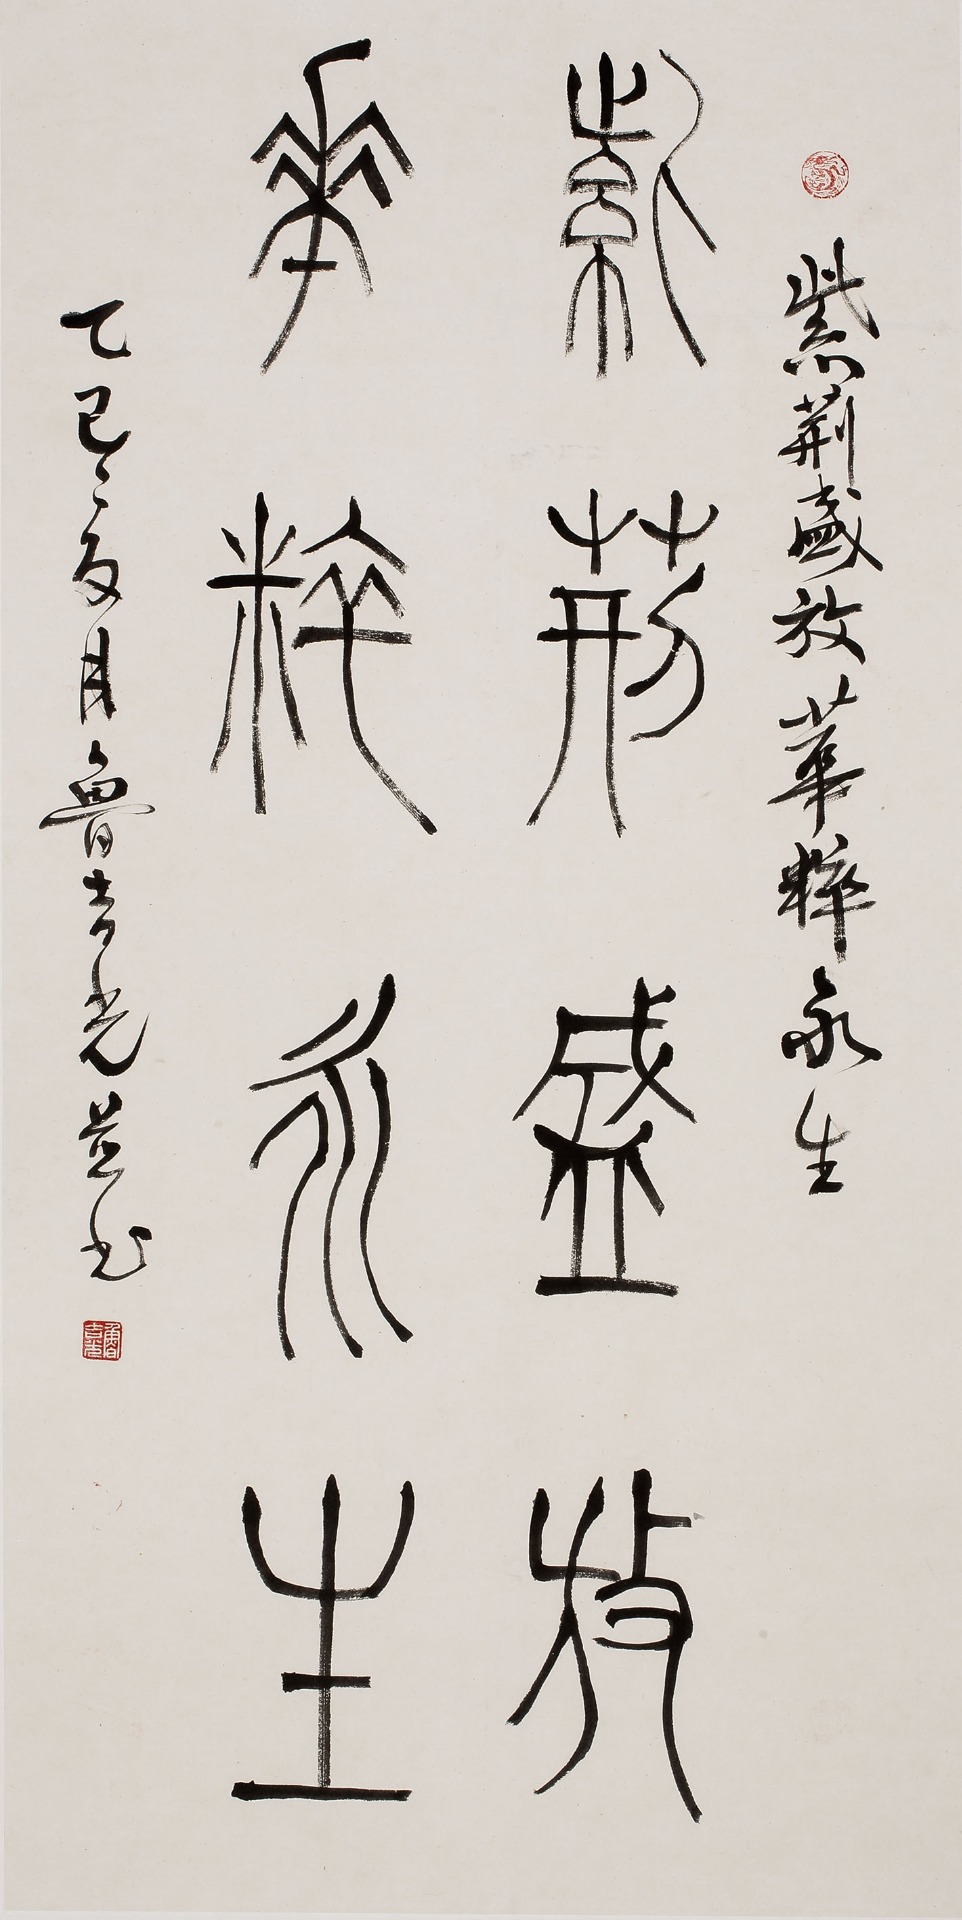 紫荆盛放華粹永生
紫荆盛放
華粹永生
乙巳之夏月魯吉光并书